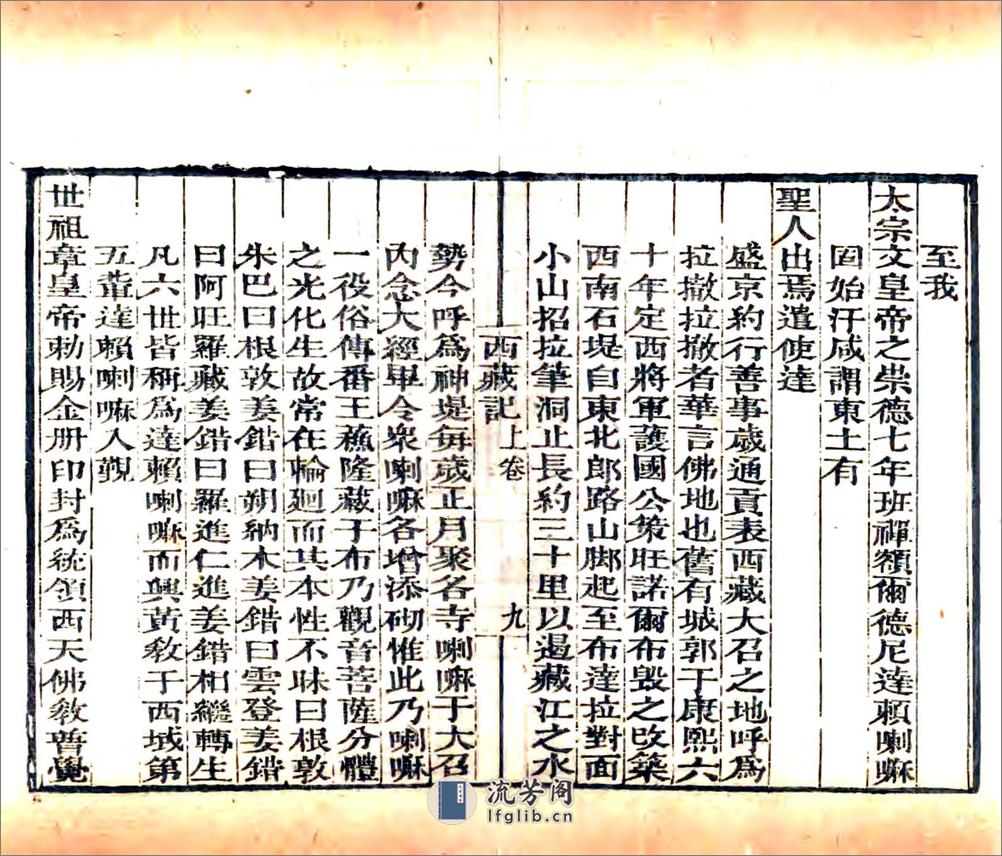 至我
太宗文皇帝之崇德七年班禪額爾德尼達賴喇嘛
固始汗咸謂東土有
聖人出焉遣使達
盛京約行善事歲通貢表西藏大召之地呼爲
拉撤拉撤者華言佛地也舊有城郭于康熙六
十年定西將軍護國公策旺諾爾布毁之改築
西南石堤自東北郎路山脚起至布達拉對面
小山招拉筆洞止長約三十里以遏藏江之水
西藏記 上卷 九
勢今呼爲神堤每歲正月聚各寺喇嘛于大召
內念大經畢令衆喇嘛各增添砌惟此乃喇嘛
一役俗傳番王蕉隆藏于布乃觀音菩薩分體
之光化生故常在輪廻而其本性不昧曰根敦
朱巴曰根敦姜錯曰朔納木姜錯曰雲登姜錯
曰阿旺羅藏姜錯曰羅進仁進姜錯相繼轉生
凡六世皆稱爲達賴喇嘛而興黃敎于西域第
五輩達賴喇嘛入覲
世祖章皇帝勅賜金册印封爲統領西天佛敎普覺
流芳阁
lfglib.cn